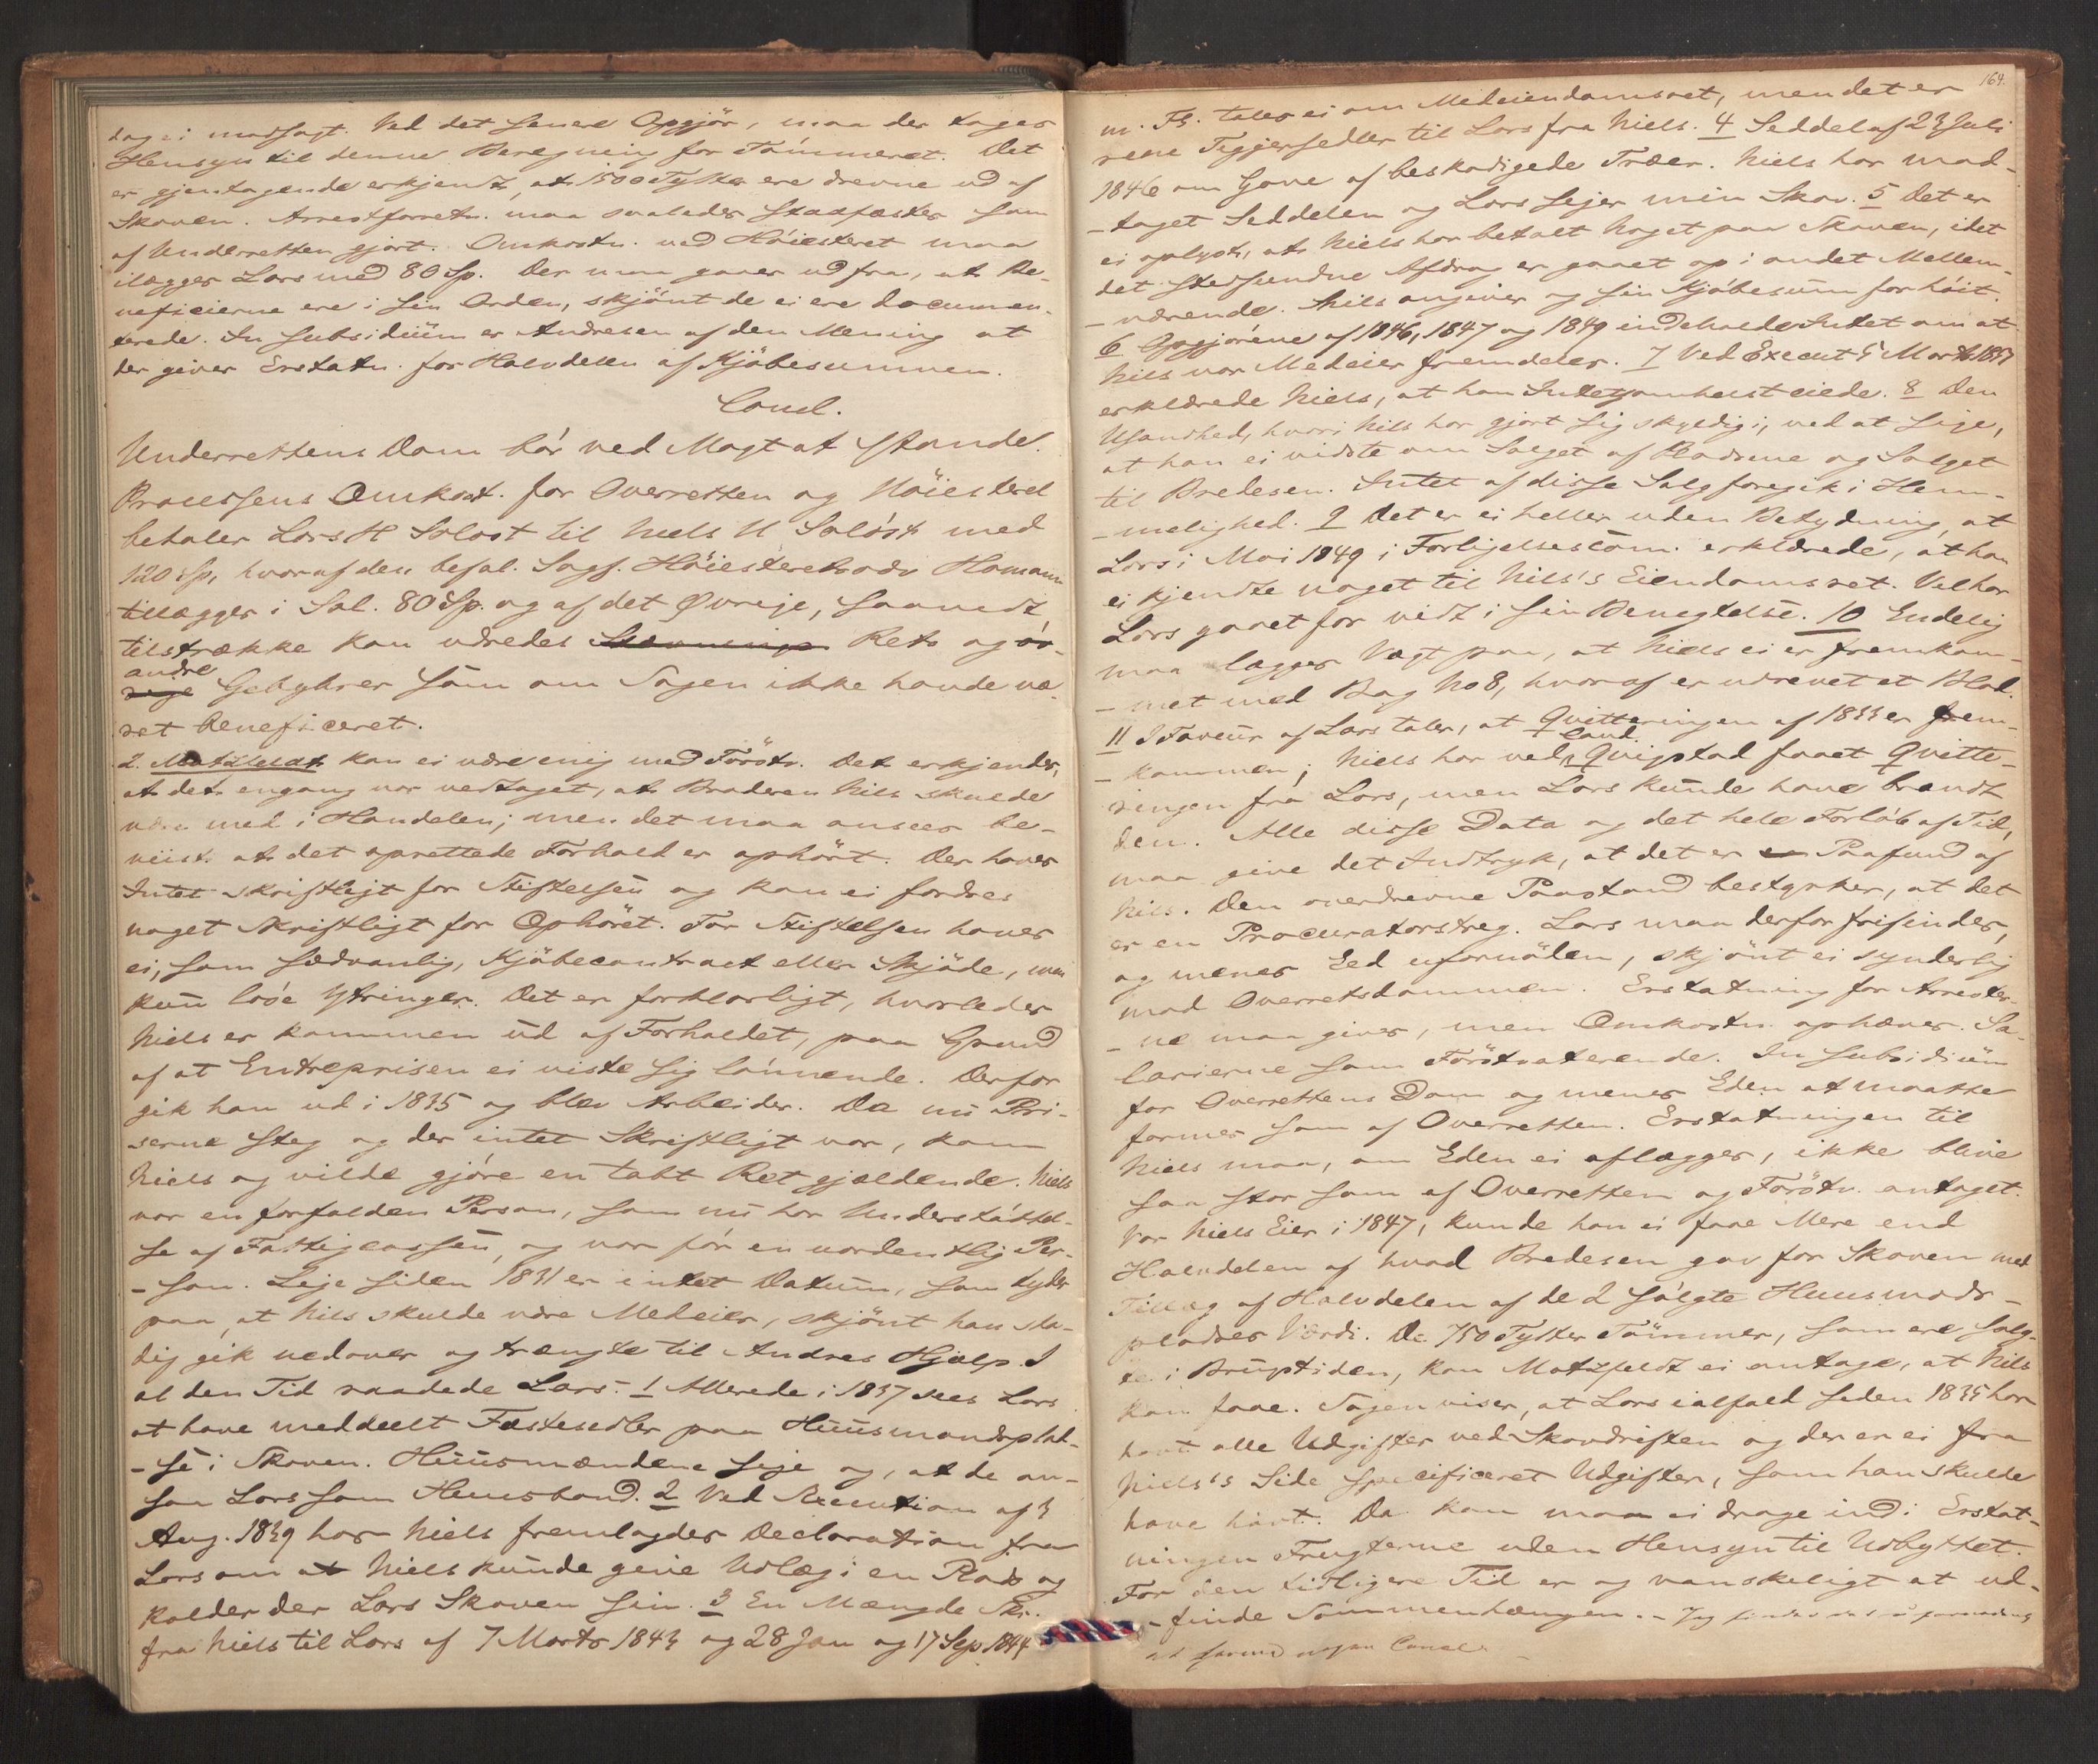 dog ei modsagt. Ved det senere Opgjör, maa der tages
Hensyn til denne Beregning for Tömmeret. Det
er gjentagende erkjendt, at 1500 Tylter ere drevne ud af
Skoven. Arrestforretn. maa saaledes stadfæstes som
af Underretten gjort. Omkostn. ved Höiesteret maa
ilægges Lars med 80 Sp. Der maa gaaes ud fra, at Be-
neficierne ere i sin Orden, skjönt de ei ere documen-
terede. In subsidium er Andresen af den Mening at
der gives Erstatn. for Halvdelen af Kjöbesummen.
Concl.
Underrettens Dom bör ved Magt at stande.
Processens Omkost. for Overretten og Höiesteret
betaler Lars H Solöst til Niels H Solöst med
120 Sp, hvoraf den befal. Sagf. Höiesteretsadv Homann
tillægges i Sal. 80 Sp. og af det Övrige, saavidt
tilstrække kan udredes Rets og öv-
andre
rige Gebyhrer som om Sagen ikke havde væ-
ret beneficeret.
2. Motzfeldt kan ei være enig med Förstv. Det erkjendes,
at det engang var vedtaget, at Broderen Niels skulde
være med i Handelen; men det maa ansees be-
viist at det oprettede Forhold er ophört. Der haves
Intet skriftligt for Stiftelsen og kan ei fordres
noget Skriftligt for Ophöret. For Stiftelsen haves
ei, som sædvanlig, Kjöbecontract eller Skjöde, men
kun löse Ytringer. Det er forklarligt, hvorledes
Niels er kommen ud af Forholdet, paa Grund
af at Entreprisen ei viste sig lönnende. Derfor
gik han ud i 1835 og blev Arbeider. Da nu Pri-
serne steg og der intet Skriftligt var, kom
Niels og vilde gjöre en tabt Ret gjældende. Niels
var en forfalden Person, som nu har Understöttel-
se af Fattigcassen, og var för en uordentlig Per-
-son. Lige siden 1831 er intet Datum, som tyder
paa, at Niels skulde være Medeier, skjönt han sta-
dig gik nedover og trængte til Andres Hjælp. I
al den Tid raadede Lars. 1 Allerede i 1837 sees Lars
at have meddeelt Fæstesedler paa Huusmandsplad-
-se i Skoven. Huusmændene sige og, at de an-
saa Lars som Huusbond. 2 Ved Execution af 3
Aug. 1839 har Niels fremlagdes Declaration fra
Lars om at Niels kunde give Udlæg i en Plads og
kalder der Lars Skoven sin. 3 En Mængde Skr.
fra Niels til Lars af 7 Marts 1843 og 28 Jan og 17 Sep 1844
164.
m. Fl. taler ei om Medeiendomsret, men det er
rene Tiggersedler til Lars fra Niels. 4 Seddel af 23 Juli
1846 om Gave af beskadigede Træer. Niels har mod-
-taget Seddelen og Lars siger min Skov. 5 Det er
ei oplyst, at Niels har betalt Noget paa Skoven, idet
det stedfundne Afdrag er gaaet op i andet Mellem-
-værende. Niels angiver og sin Kjöbesum for höit.
6 Opgjörene af 1846, 1847 og 1849 indeholde Intet om at
Niels var Medeier fremdeles. 7 Ved Execut 5 Marts 1853
erklærede Niels, at han Intetsomhelst eiede. 8 Den
Usandhed, hvori Niels har gjort sig skyldig i, ved at sige,
at han ei vidste om Salget af Pladsene og Salget
til Bredesen. Intet af disse Salg foregik i Hem-
-melighed. 9 Det er ei heller uden Betydning, at
Lars i Mai 1849 i Forligelsescom. erklærede, at han
ei kjendte noget til Niels's Eiendomsret. Vel har
Lars gaaet for vidt i sin Benegtelse. 10 Endelig
maa lægges Vægt paa, at Niels ei er fremkom-
-met med Bog No 8, hvoraf er udrevet et Blad.
11 I Faveur af Lars taler, at Qvitteringen af 1833 er frem-
cand.
-kommen; Niels har ved Qvigstad faaet Qvitte-
ringen fra Lars, men Lars kunde have brændt
den. Alle disse Data og det hele Forlöb af Tid,
maa give det Indtryk, at det er Paafund af
Niels. Den overdrevne Paastand bestyrker, at det
er en Procuratorstreg. Lars maa derfor frifindes,
og menes Eed ufornöden, skjönt ei synderlig
mod Overretsdommen. Erstatning for Arrester-
-ne maa gives, men Omkostn. ophæves. Sa-
larierne som Förstvoterende. In subsidium
for Overrettens Dom og menes Eden at maatte
formes som af Overretten. Erstatningen til
Niels maa, om Eden ei aflægges, ikke blive
saa stor som af Overretten og Förstv. antaget.
Var Niels Eier i 1847, kunde han ei faae Mere end
Halvdelen af hvad Bredesen gav for Skoven med
Tillæg af Halvdelen af de 2 solgte Huusmands-
pladses Værdi. De 750 Tylter Tömmer, som ere solg-
te i Brugstiden, kan Motzfeldt ei antage, at Niels
kan faae. Sagen viser, at Lars ialfald siden 1835 har
havt alle Udgifter ved Skovdriften og der er ei fra
Niels's Side specificeret Udgifter, som han skulde
have havt. Da kan man ei drage ind i Erstat-
ningen Frugterne uden Hensyn til Udbyttet.
For den tidligere Tid er og vanskeligt at ud-
-finde Sammenhængen. - Jeg finder det
at forme nogen Concl.